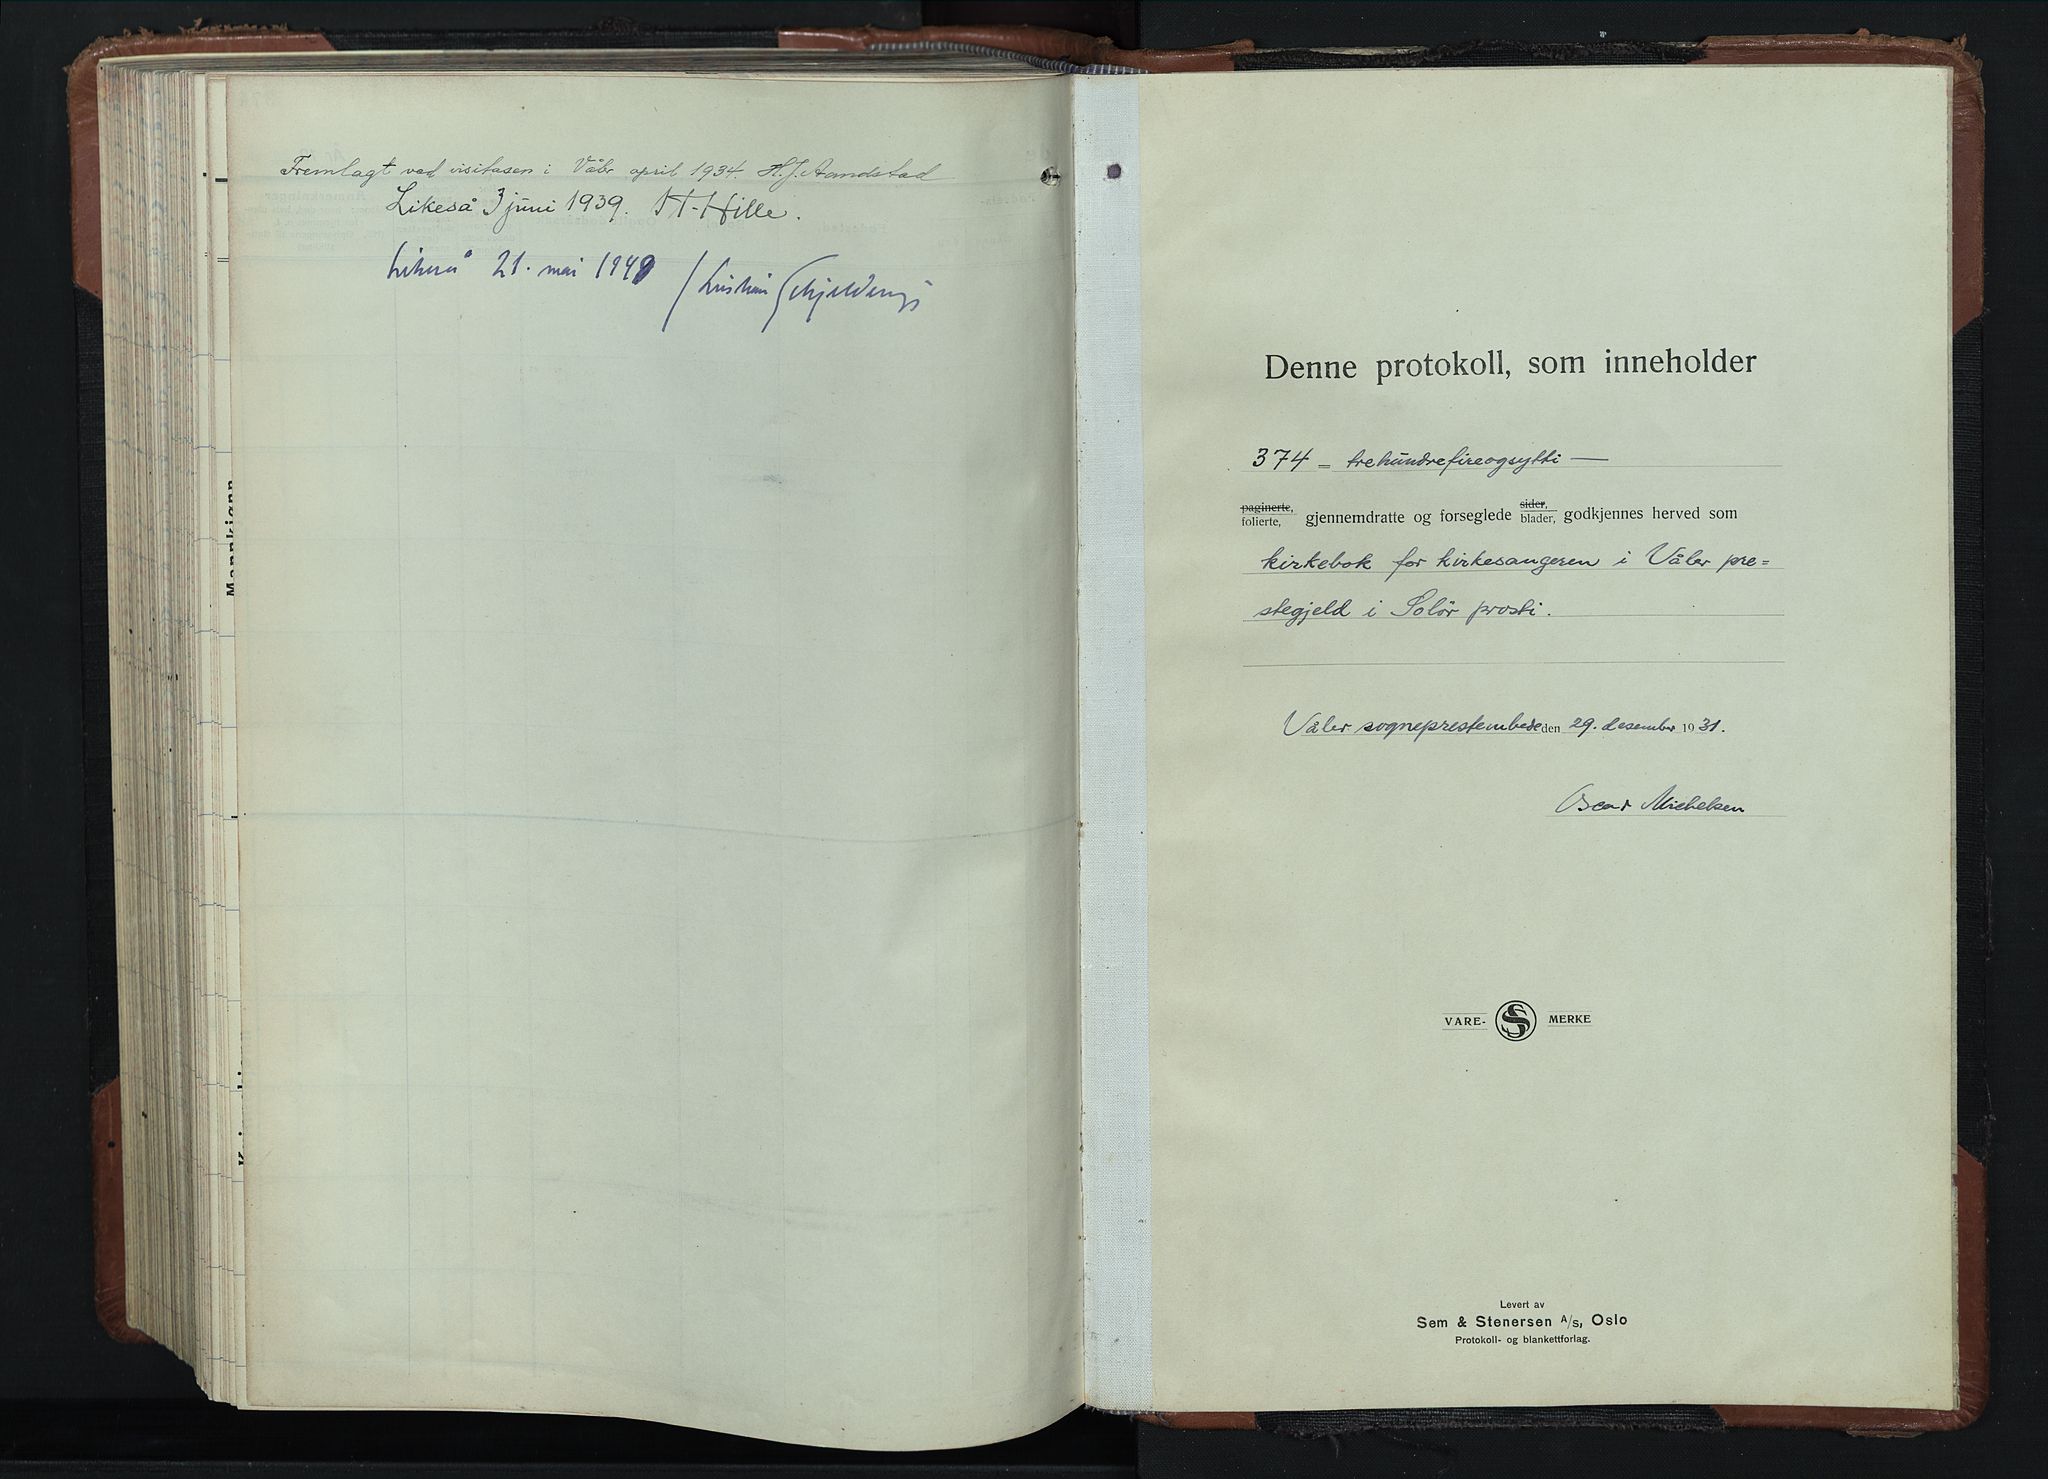 Fremlagt ved visitasen i Våler april 1934. H.J. Aandstad
Likeså 3 juni 1939. H. Hille.
Likeså 21. mai 1949 Kristian Schjelderup
Mannkjønn
Denne protokoll, som inneholder
374 = trehundrefireogsytti —
paginerte, sider,
folierte, gjennemdratte og forseglede blader, godkjennes herved som
kirkebok for kirkesangeren i Våler pre=
stegjeld i Solør prosti.
Våler sogneprestembede den 29. desember 1931.
Oscar Michelsen
VARE- S MERKE
Levert av
Sem & Stenersen A/s, Oslo
Protokoll- og blankettforlag.